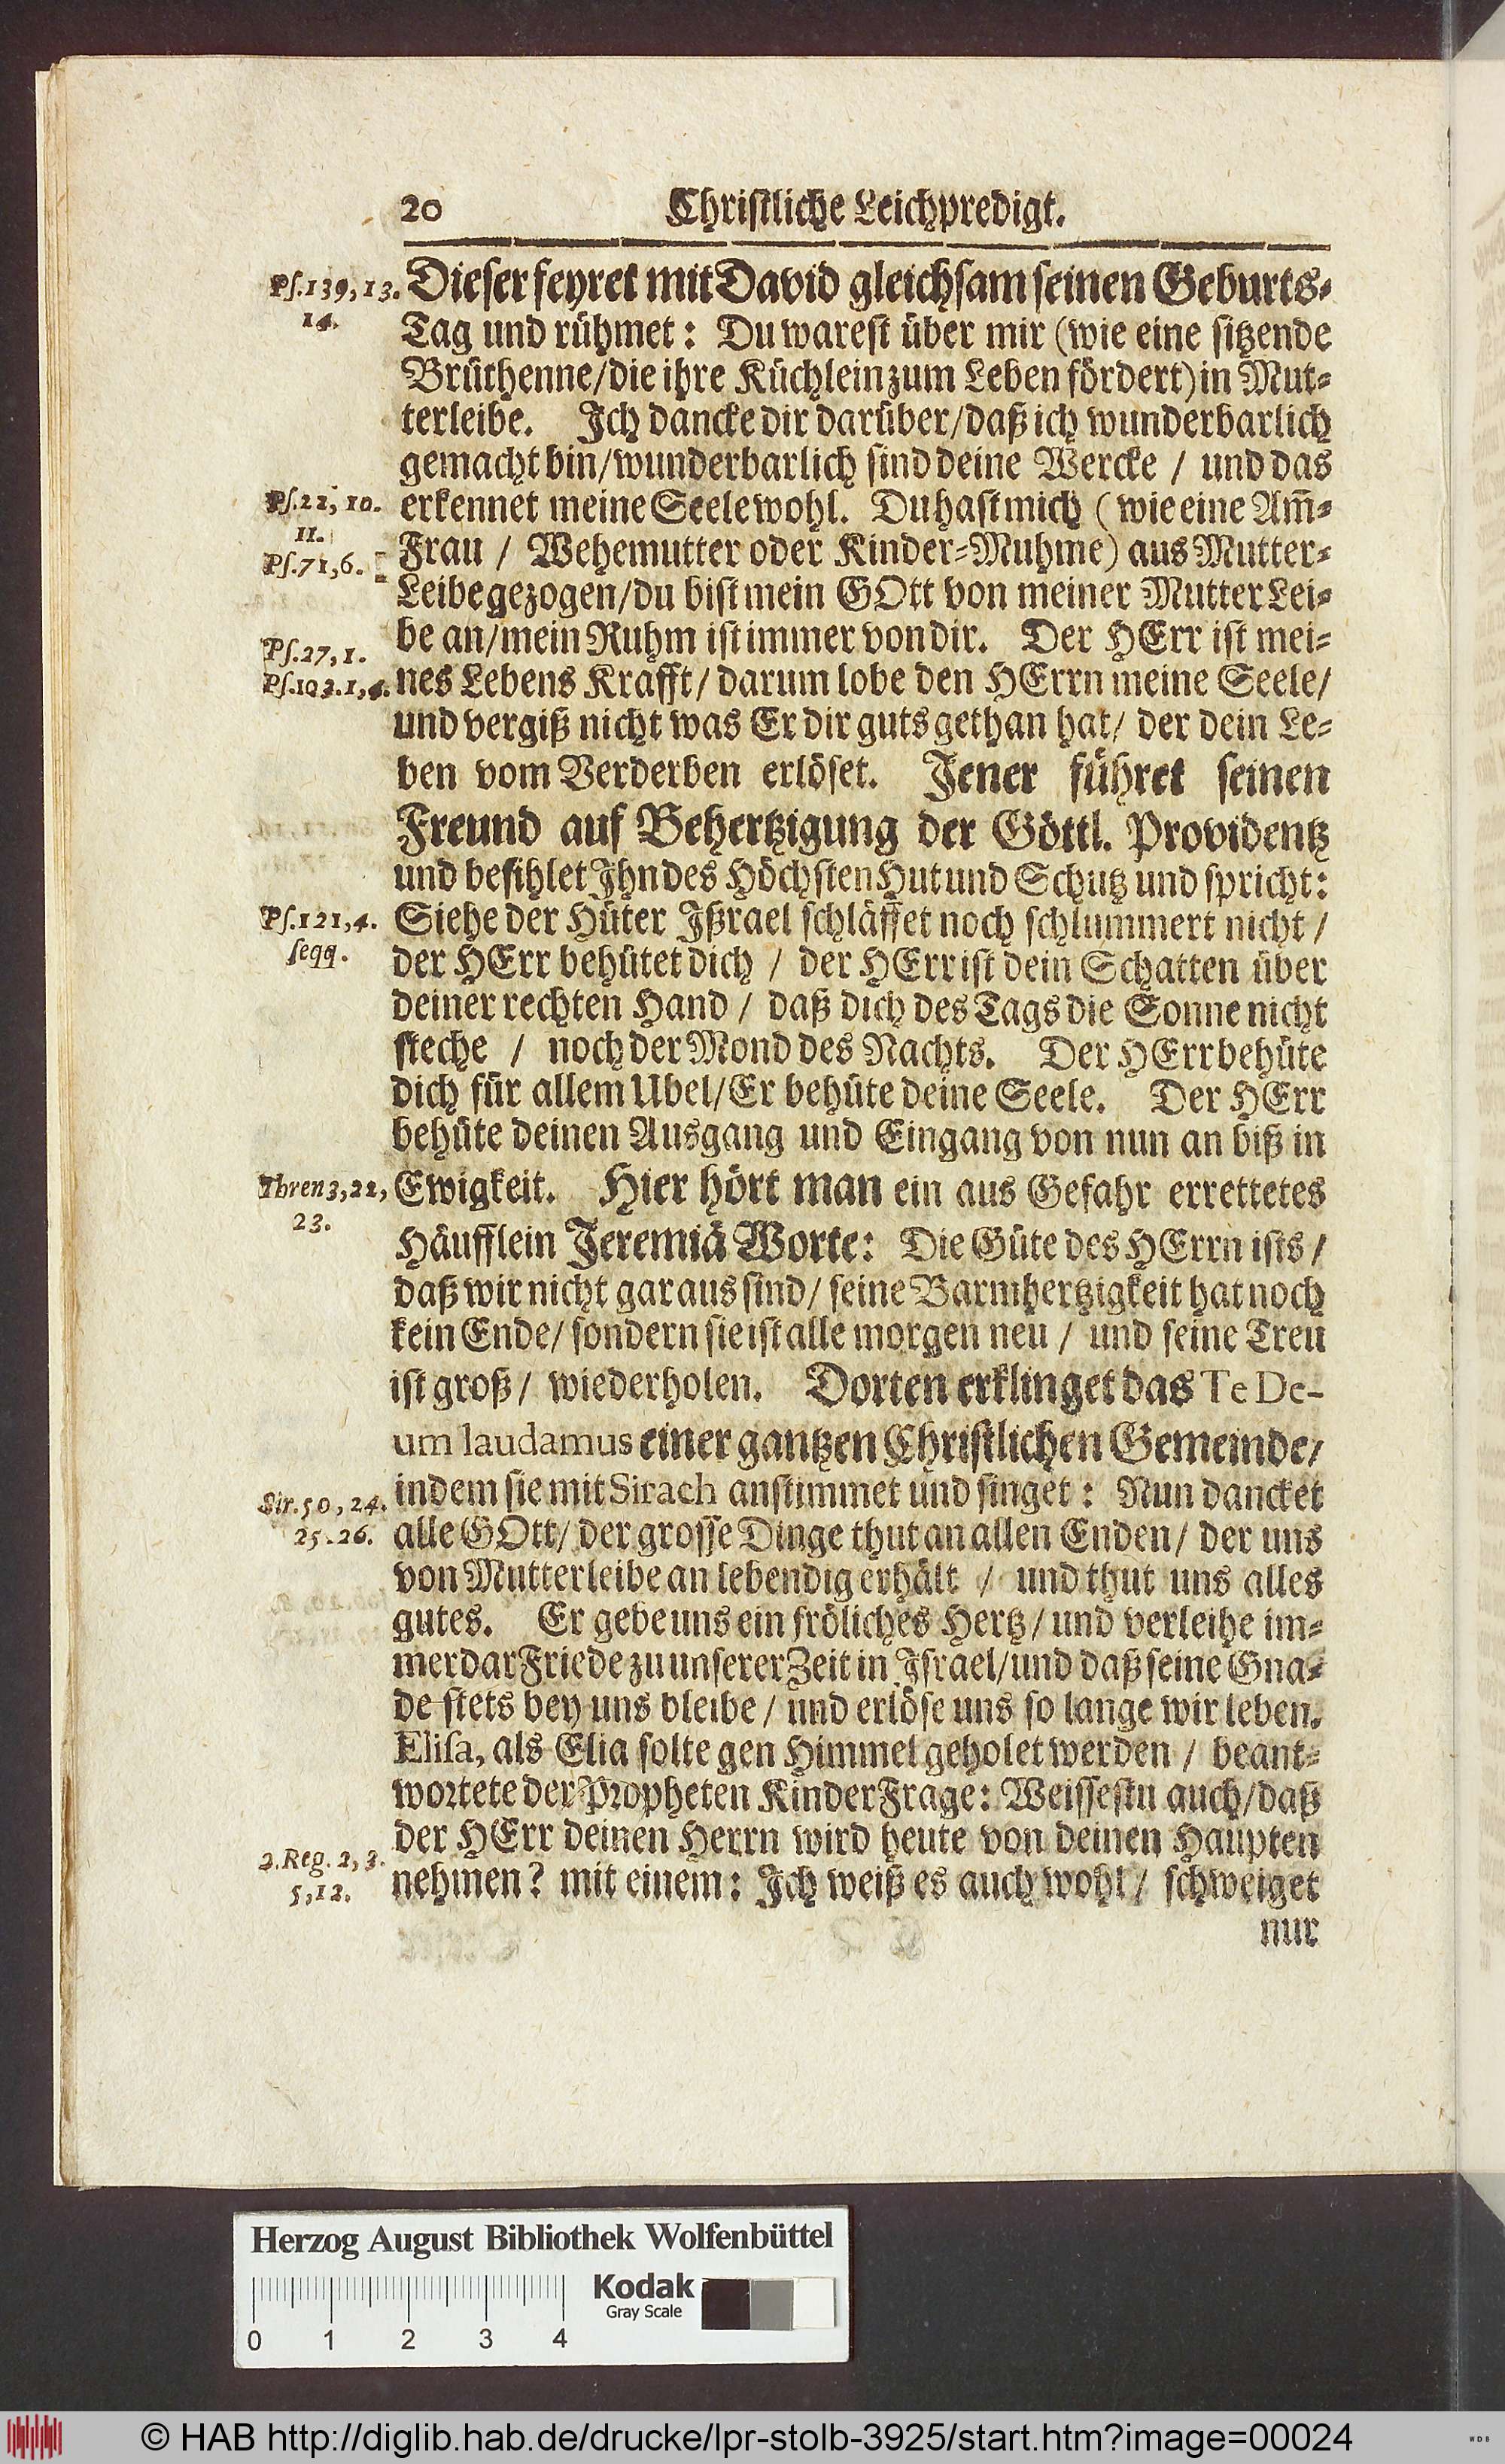 20 Christliche Leichpredigt.
Ps.139,13. Dieser feyret mit David gleichsam seinen Geburts-
14. Tag und rühmet: Du warest über mir (wie eine sitzende
Brüthenne/die ihre Küchlein zum Leben fördert) in Mut-
terleibe. Ich dancke dir darüber/daß ich wunderbarlich
gemacht bin/wunderbarlich sind deine Wercke / und das
Ps.22, 10. erkennet meine Seele wohl. Du hast mich (wie eine Am̃-
11.
Ps.71,6. Frau / Wehemutter oder Kinder-Muhme) aus Mutter-
Leibe gezogen/du bist mein GOtt von meiner Mutter Lei-
Ps.27,1. be an/mein Ruhm ist immer von dir. Der HErr ist mei-
Ps.103.1,4. nes Lebens Krafft/ darum lobe den HErrn meine Seele/
und vergiß nicht was Er dir guts gethan hat/ der dein Le-
ben vom Verderben erlöset. Jener führet seinen
Freund auf Behertzigung der Göttl. Providentz
und befihlet Ihn des Höchsten Hut und Schutz und spricht:
Ps.121,4. Siehe der Hüter Ißrael schläffet noch schlummert nicht /
seqq. der HErr behütet dich / der HErr ist dein Schatten über
deiner rechten Hand / daß dich des Tags die Sonne nicht
steche / noch der Mond des Nachts. Der HErr behüte
dich für allem Ubel/Er behüte deine Seele. Der HErr
behüte deinen Ausgang und Eingang von nun an biß in
Thren 3,22, Ewigkeit. Hier hört man ein aus Gefahr errettetes
23. Häufflein Jeremiä Worte: Die Güte des HErrn ists /
daß wir nicht gar aus sind/ seine Barmhertzigkeit hat noch
kein Ende/ sondern sie ist alle morgen neu / und seine Treu
ist groß/ wiederholen. Dorten erklinget das Te De-
um laudamus einer gantzen Christlichen Gemeinde/
Sir.50,24. indem sie mit Sirach anstimmet und singet: Nun dancket
25.26. alle GOtt/ der grosse Dinge thut an allen Enden/ der uns
von Mutterleibe an lebendig erhält / und thut uns alles
gutes. Er gebe uns ein fröliches Hertz/ und verleihe im-
merdar Friede zu unserer Zeit in Israel/und daß seine Gna-
de stets bey uns bleibe / und erlöse uns so lange wir leben.
Elisa, als Elia solte gen Himmel geholet werden / beant-
wortete der Propheten Kinder Frage: Weissestu auch/daß
der HErr deinen Herrn wird heute von deinen Haupten
2.Reg. 2, 3. nehmen? mit einem: Ich weiß es auch wohl/ schweiget
5,12.
nur
Herzog August Bibliothek Wolfenbüttel
Kodak
Gray Scale
0 1 2 3 4
© HAB http://diglib.hab.de/drucke/lpr-stolb-3925/start.htm?image=00024
WDB